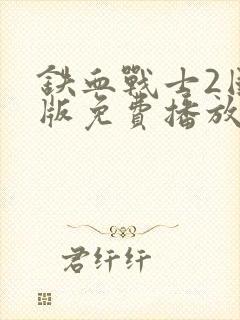 鉄血戰士2
版免費播放
君纤纤